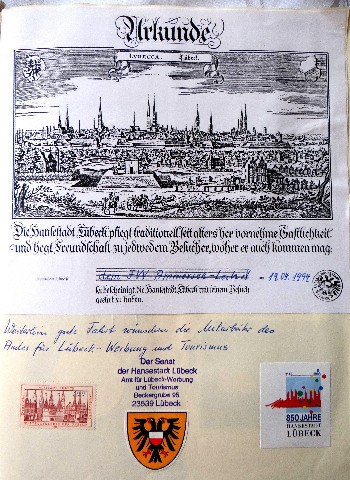 Urkunde
LVBECCA. Lübeck.
Die Hansestadt Lübeck pflegt traditionell seit alters her vornehme Gastlichkeit
und hegt Freundschaft zu jedwedem Besucher, woher er auch kommen mag.
dem FVV
bescheinigt die Hansestadt Lübeck mit seinem Besuch
geehrt zu haben.
Weiterhin gute Fahrt wünschen die Mitarbeiter des
Amtes für Lübeck-Werbung und Tourismus
Der Senat
der Hansestadt Lübeck
Amt für Lübeck-Werbung
und Tourismus
Beckergrube 95
23539 Lübeck
850 JAHRE
HANSESTADT
LÜBECK